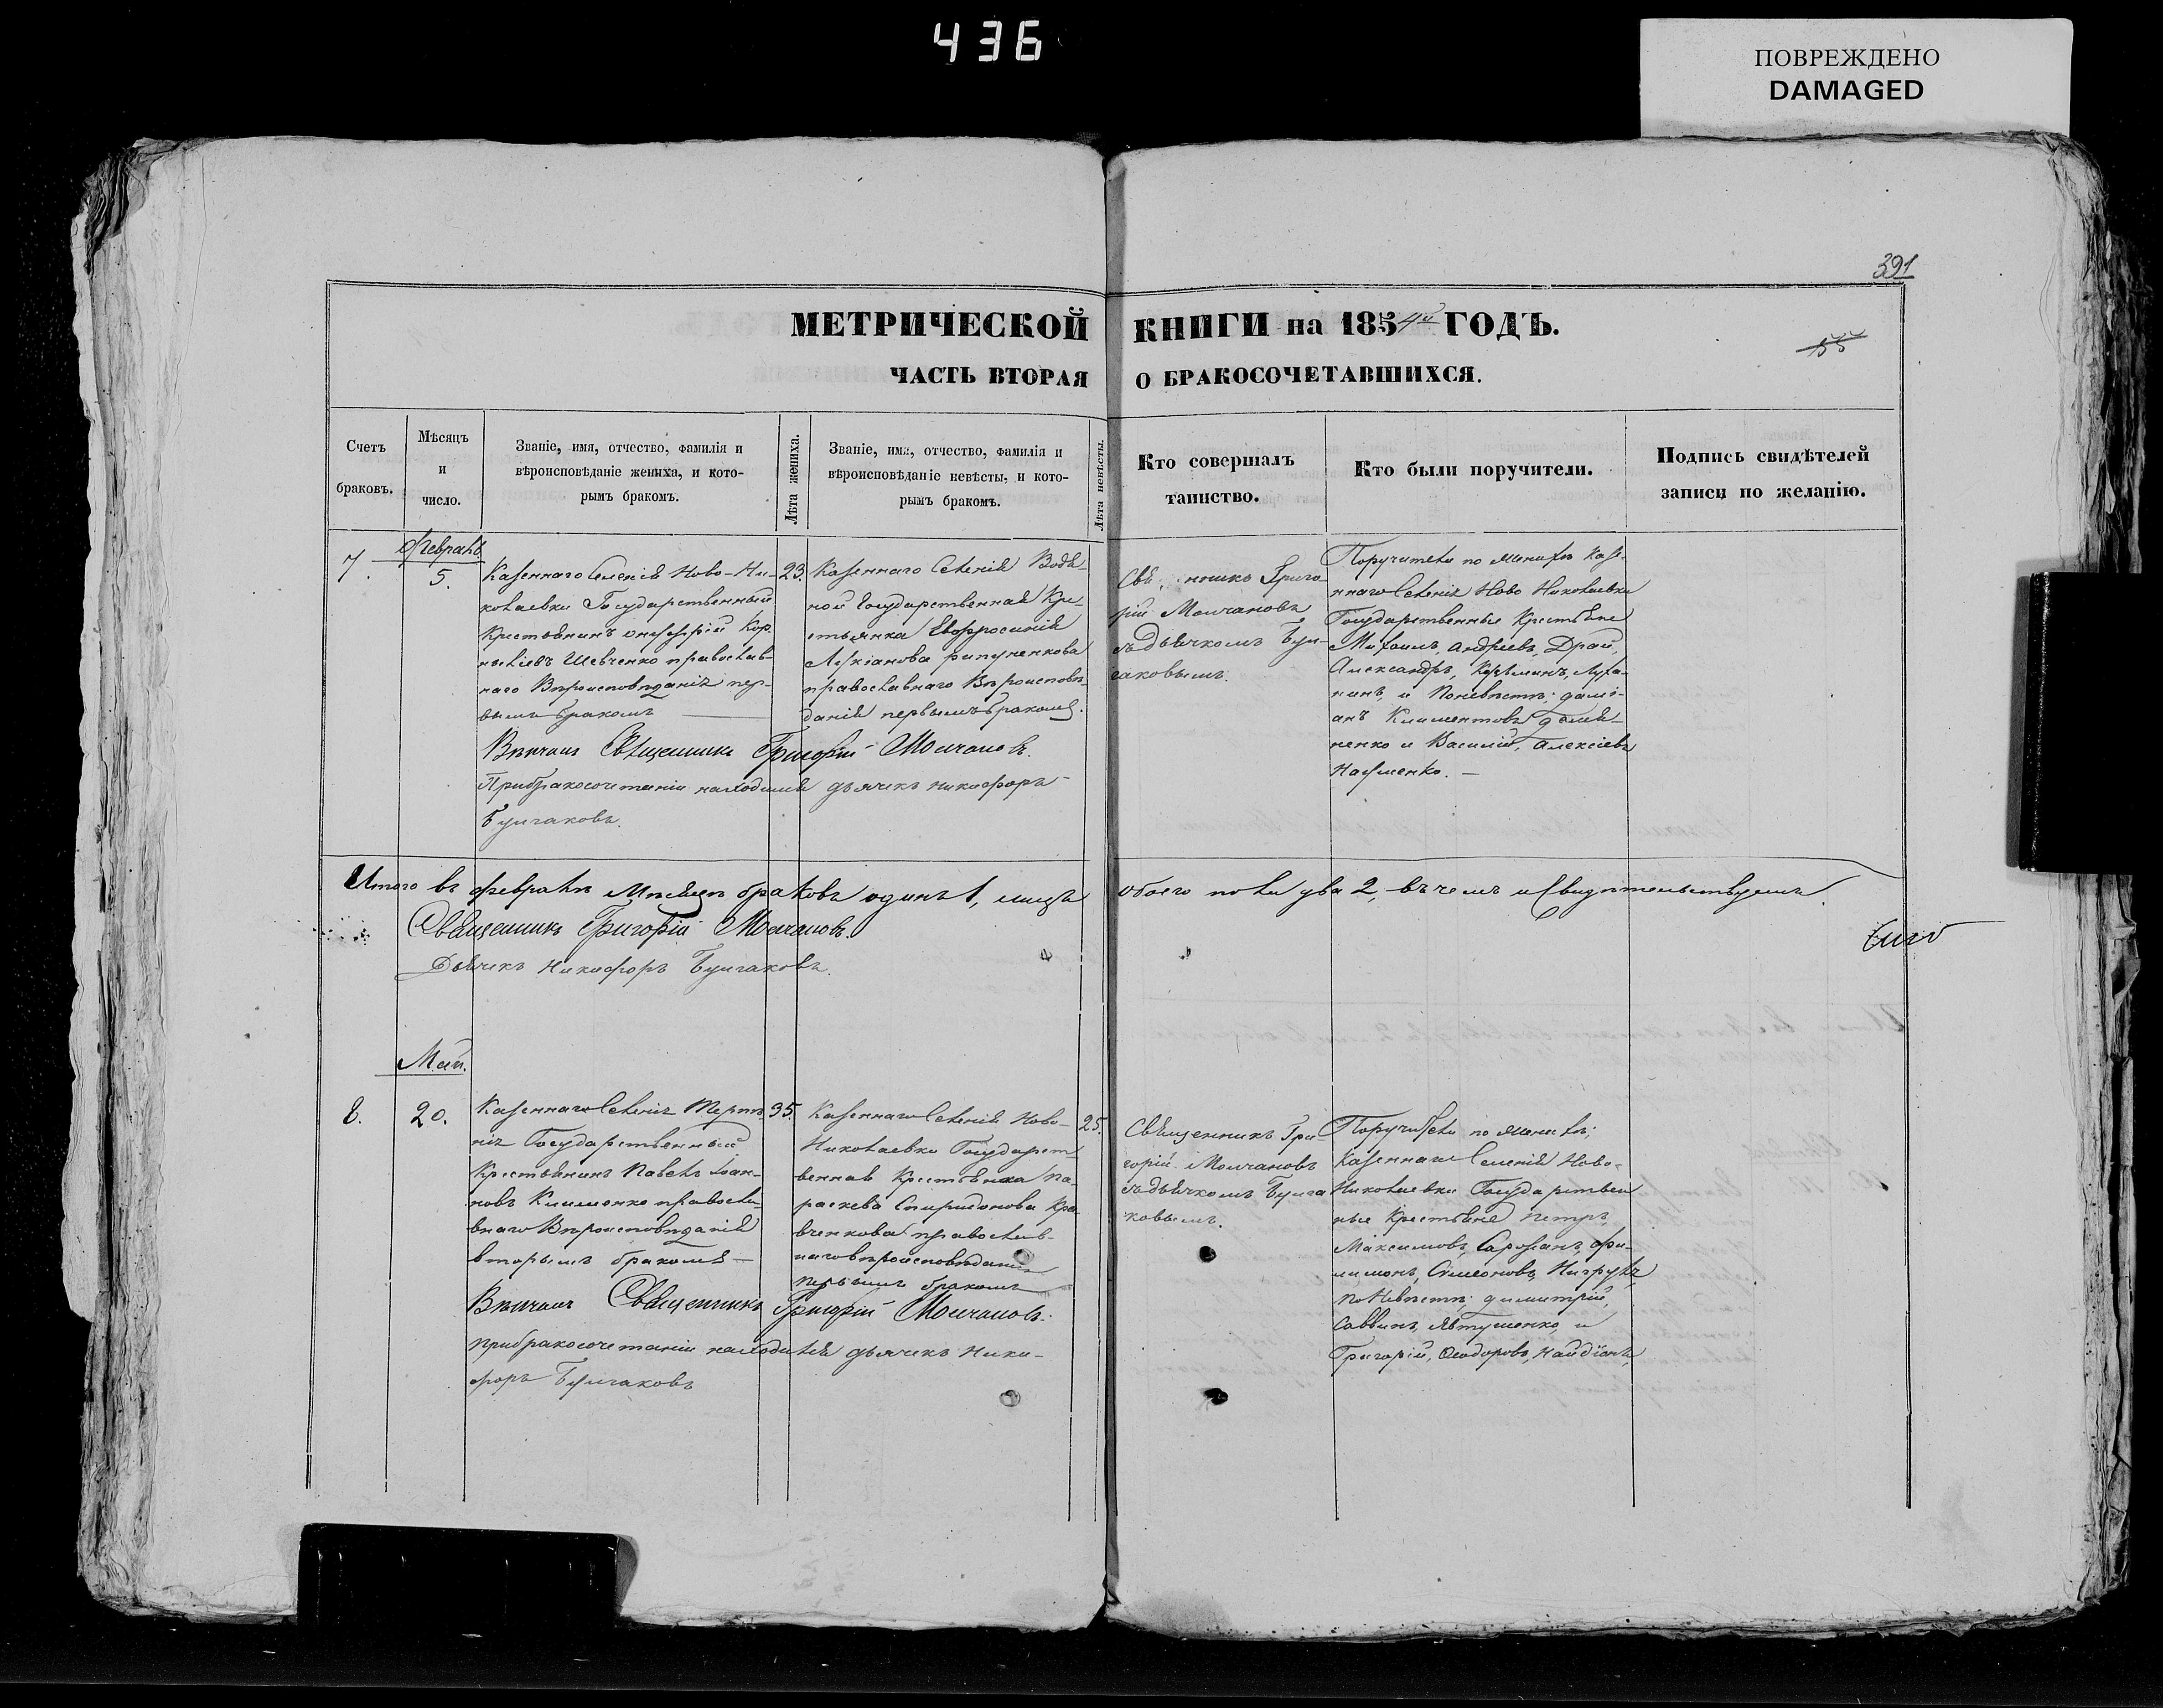 436
ПОВРЕЖДЕНО
DAMAGED
391
МЕТРИЧЕСКОЙ КНИГИ на 1854й ГОДЪ.
55
ЧАСТЬ ВТОРАЯ О БРАКОСОЧЕТАВШИХСЯ.
Счетъ
браковъ.
Мѣсяцъ
и
число.
Званіе, имя, отчество, фамилія и
вѣроисповѣданіе жениха, и кото-
рымъ бракомъ.
Лѣта жениха.
Званіе, имя, отчество, фамилія и
вѣроисповѣданіе невѣсты, и кото-
рымъ бракомъ.
Лѣта невѣсты.
Кто совершалъ
таинство.
Кто были поручители.
Подпись свидѣтелей
записи по желанію.
7.
Февраль
5.
Казеннаго Селенія Ново-Ни-
колаевки Государственный
Крестьянинъ Онуфрій Кор
ниліевъ Шевченко православ-
наго Вѣроисповѣданія пер-
вымъ бракомъ
23.
Казеннаго Селенія Водя-
ной Государственная Кре-
стьянка Евфросинія
Лукіанова
православнаго Вѣроисповѣ-
данія первымъ бракомъ.
Григо-
рій Молчановъ
съ Дьячкомъ Бул-
гаковымъ.
Поручители по женихѣ Казе-
ннаго Селенія Ново Николаевки
Государственные Крестьяне
Михаилъ, Андреевъ, Драй,
Александръ, Козьминъ,
и По невѣстѣ; Дамі-
анъ Климентовъ
ненко и Василій, Алексіевъ
Науменко.
Вѣнчалъ Священникъ Григорій Молчановъ.
При бракосочетаніи находился дьячекъ Никифоръ
Булгаковъ.
Итого въ Февралѣ Мѣсяцѣ браковъ одинъ 1, лицъ обоего пола два 2, въ чемъ и свидѣтельствуемъ.
Священникъ Григорій Молчановъ.
Дьячекъ Никифоръ Булгаковъ.
Май.
8.
20.
Казеннаго Селенія Терпѣ
нія Государственный
Крестьянинъ Павелъ Іоан-
новъ Клименко правосла-
внаго Вѣроисповѣданія
вторымъ бракомъ
35.
Казеннаго Селенія Ново-
Николаевки Государст-
венная Крестьянка Па-
раскева Спиридонова Кра-
вченкова православ-
наго вѣроисповѣданія
первымъ бракомъ
25.
Священникъ Гри-
горій Молчановъ
съ дьячкомъ Булга
ковымъ.
Поручители по женихѣ;
Казеннаго Селенія Ново-
Николаевки Государствен
ные Крестьяне Петръ,
Максимовъ, Фи-
лимонъ, Симеоновъ,
по Невѣстѣ; Димитрій,
Саввинъ, Явтушенко, и
Григорій, Ѳеодоровъ,
Вѣнчалъ Священникъ Григорій Молчановъ.
При бракосочетаніи находился дьячекъ Ники-
форъ Булгаковъ